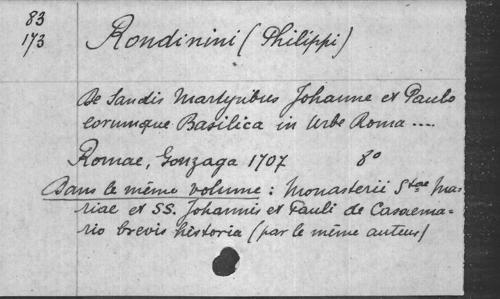 83
173
Rondinini (Philippi)
De Sanctis Martyribus Johanne et Paulo
eorumque Basilica in Urbe Roma ....
Romae, Gonzaga 1707 8°
Dans le même volume : Monasterii Stae Ma-
riae et SS. Johannis et Pauli de Casaema-
rio brevis historia (par le même auteur)